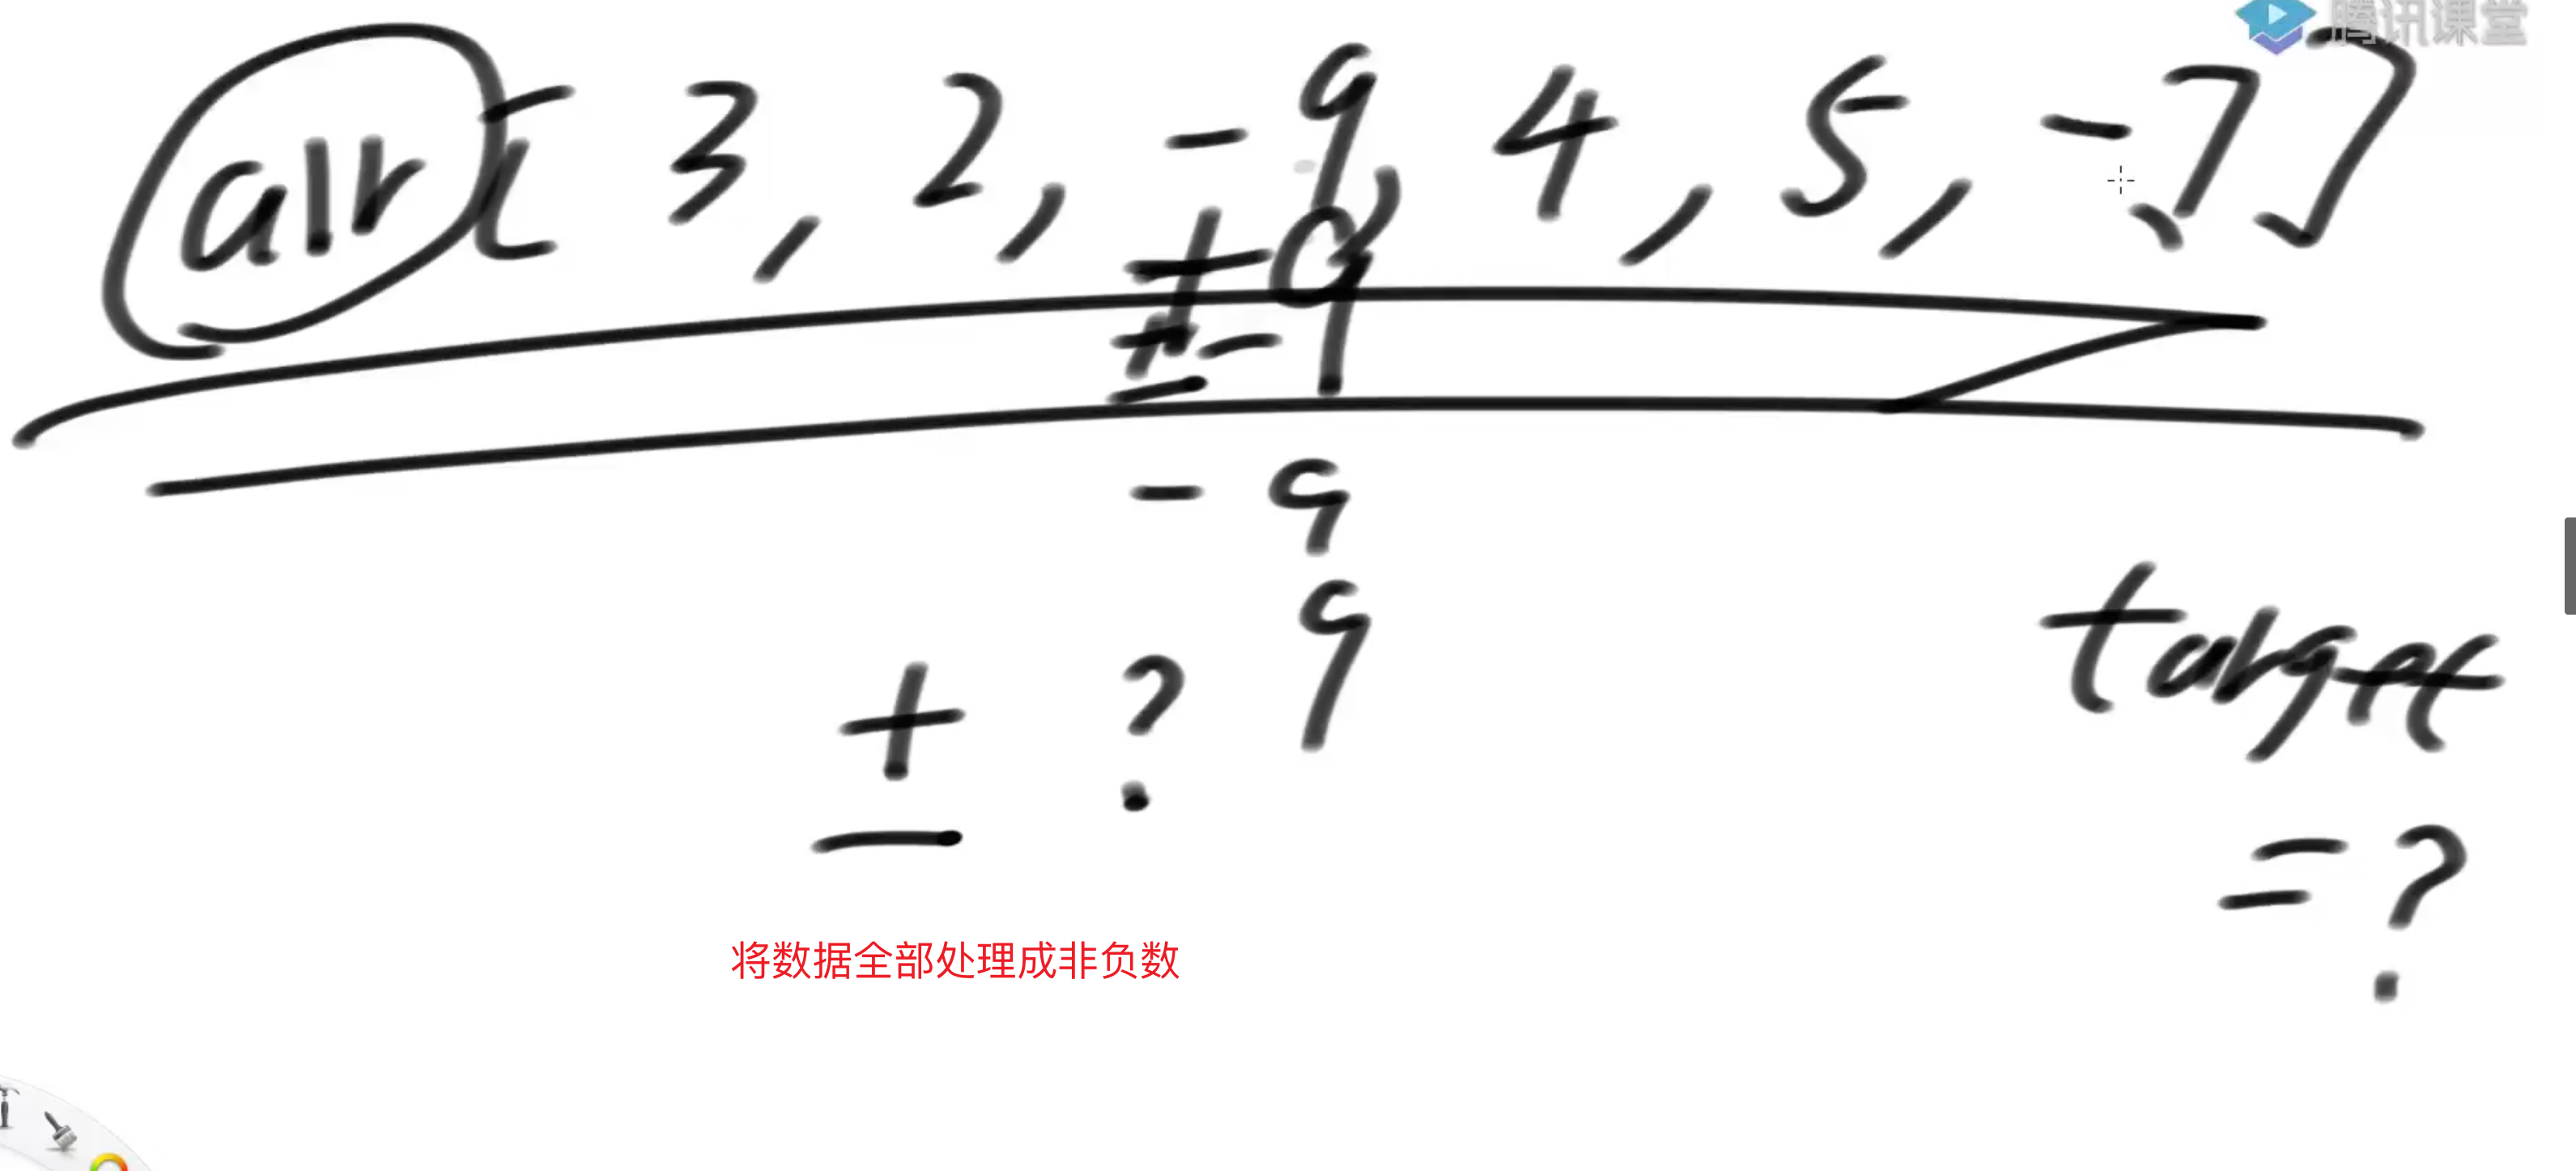 腾讯课堂
arr[ 3, 2, -9, 4, 5, -7]
+ 9
+ - 9
-
- 9
9
+ ?
-
target
= ?
将数据全部处理成非负数